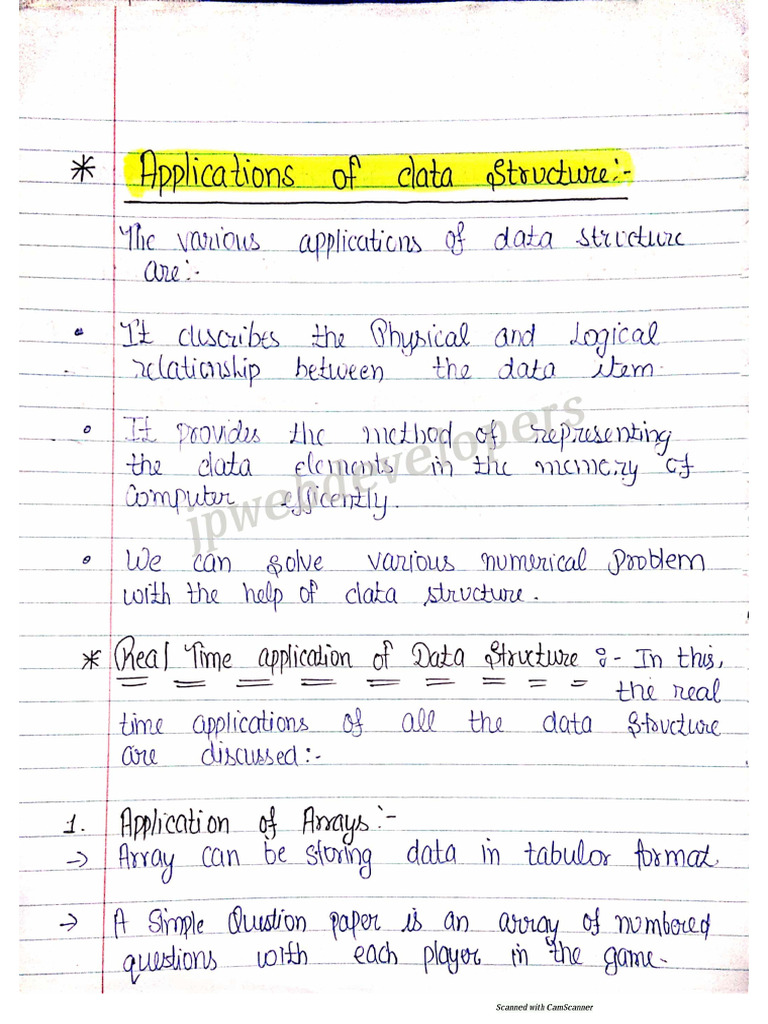 * Applications of data structure:-
The various applications of data structure
are:-
• It describes the Physical and Logical
relationship between the data item.
• It provides the method of representing
the data elements in the memory of
Computer efficently.
• We can solve various numerical problem
with the help of data structure.
* Real Time application of Data Structure :- In this,
the real
time applications of all the data structure
are discussed:-
1. Application of Arrays:-
→ Array can be storing data in tabulor format
→ A Simple Question paper is an array of numbered
questions with each player in the game.
jpwebdevelopers
Scanned with CamScanner